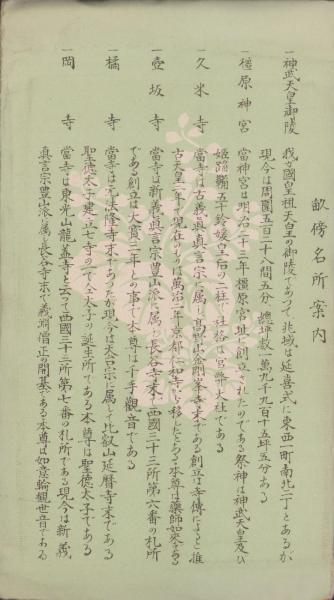 畝傍名所案内
一神武天皇御陵
我が國皇祖天皇の御陵であつて兆域は延喜式に東西一町南北二丁とあるが
現今は周圍五百二十八間五分、總坪数一萬九千九百十五坪五分ある
一橿原神宮
當神宮は明治二十三年橿原宮址に創立されたのである祭神は神武天皇及ひ
姫蹈鞴五十鈴媛皇后の二柱で社格は官幣大社である
一久米寺
當寺は古義真言宗に属し高野山金剛峯寺末である創立は寺傳によると推
古天皇二年で現在のものは萬治二年京都仁和寺より移したとある本尊は藥師如來である
一壺坂寺
當寺は新義真言宗豊山派に属し長谷寺末で西國三十三所第六番の札所
である創立は大寶三年との事で本尊は千手觀音である
一橘寺
當寺は元法隆寺末であつたが現今は天台宗に属して比叡山延暦寺末である
聖徳太子建立七寺の一で全太子の誕生所である本尊は聖徳太子である
一岡寺
當寺は東光山龍蓋寺と云つて西國三十三所第七番の札所である現今は新義
真言宗豊山派に属し長谷寺末で義淵僧正の開基である本尊は如意輪觀世音である